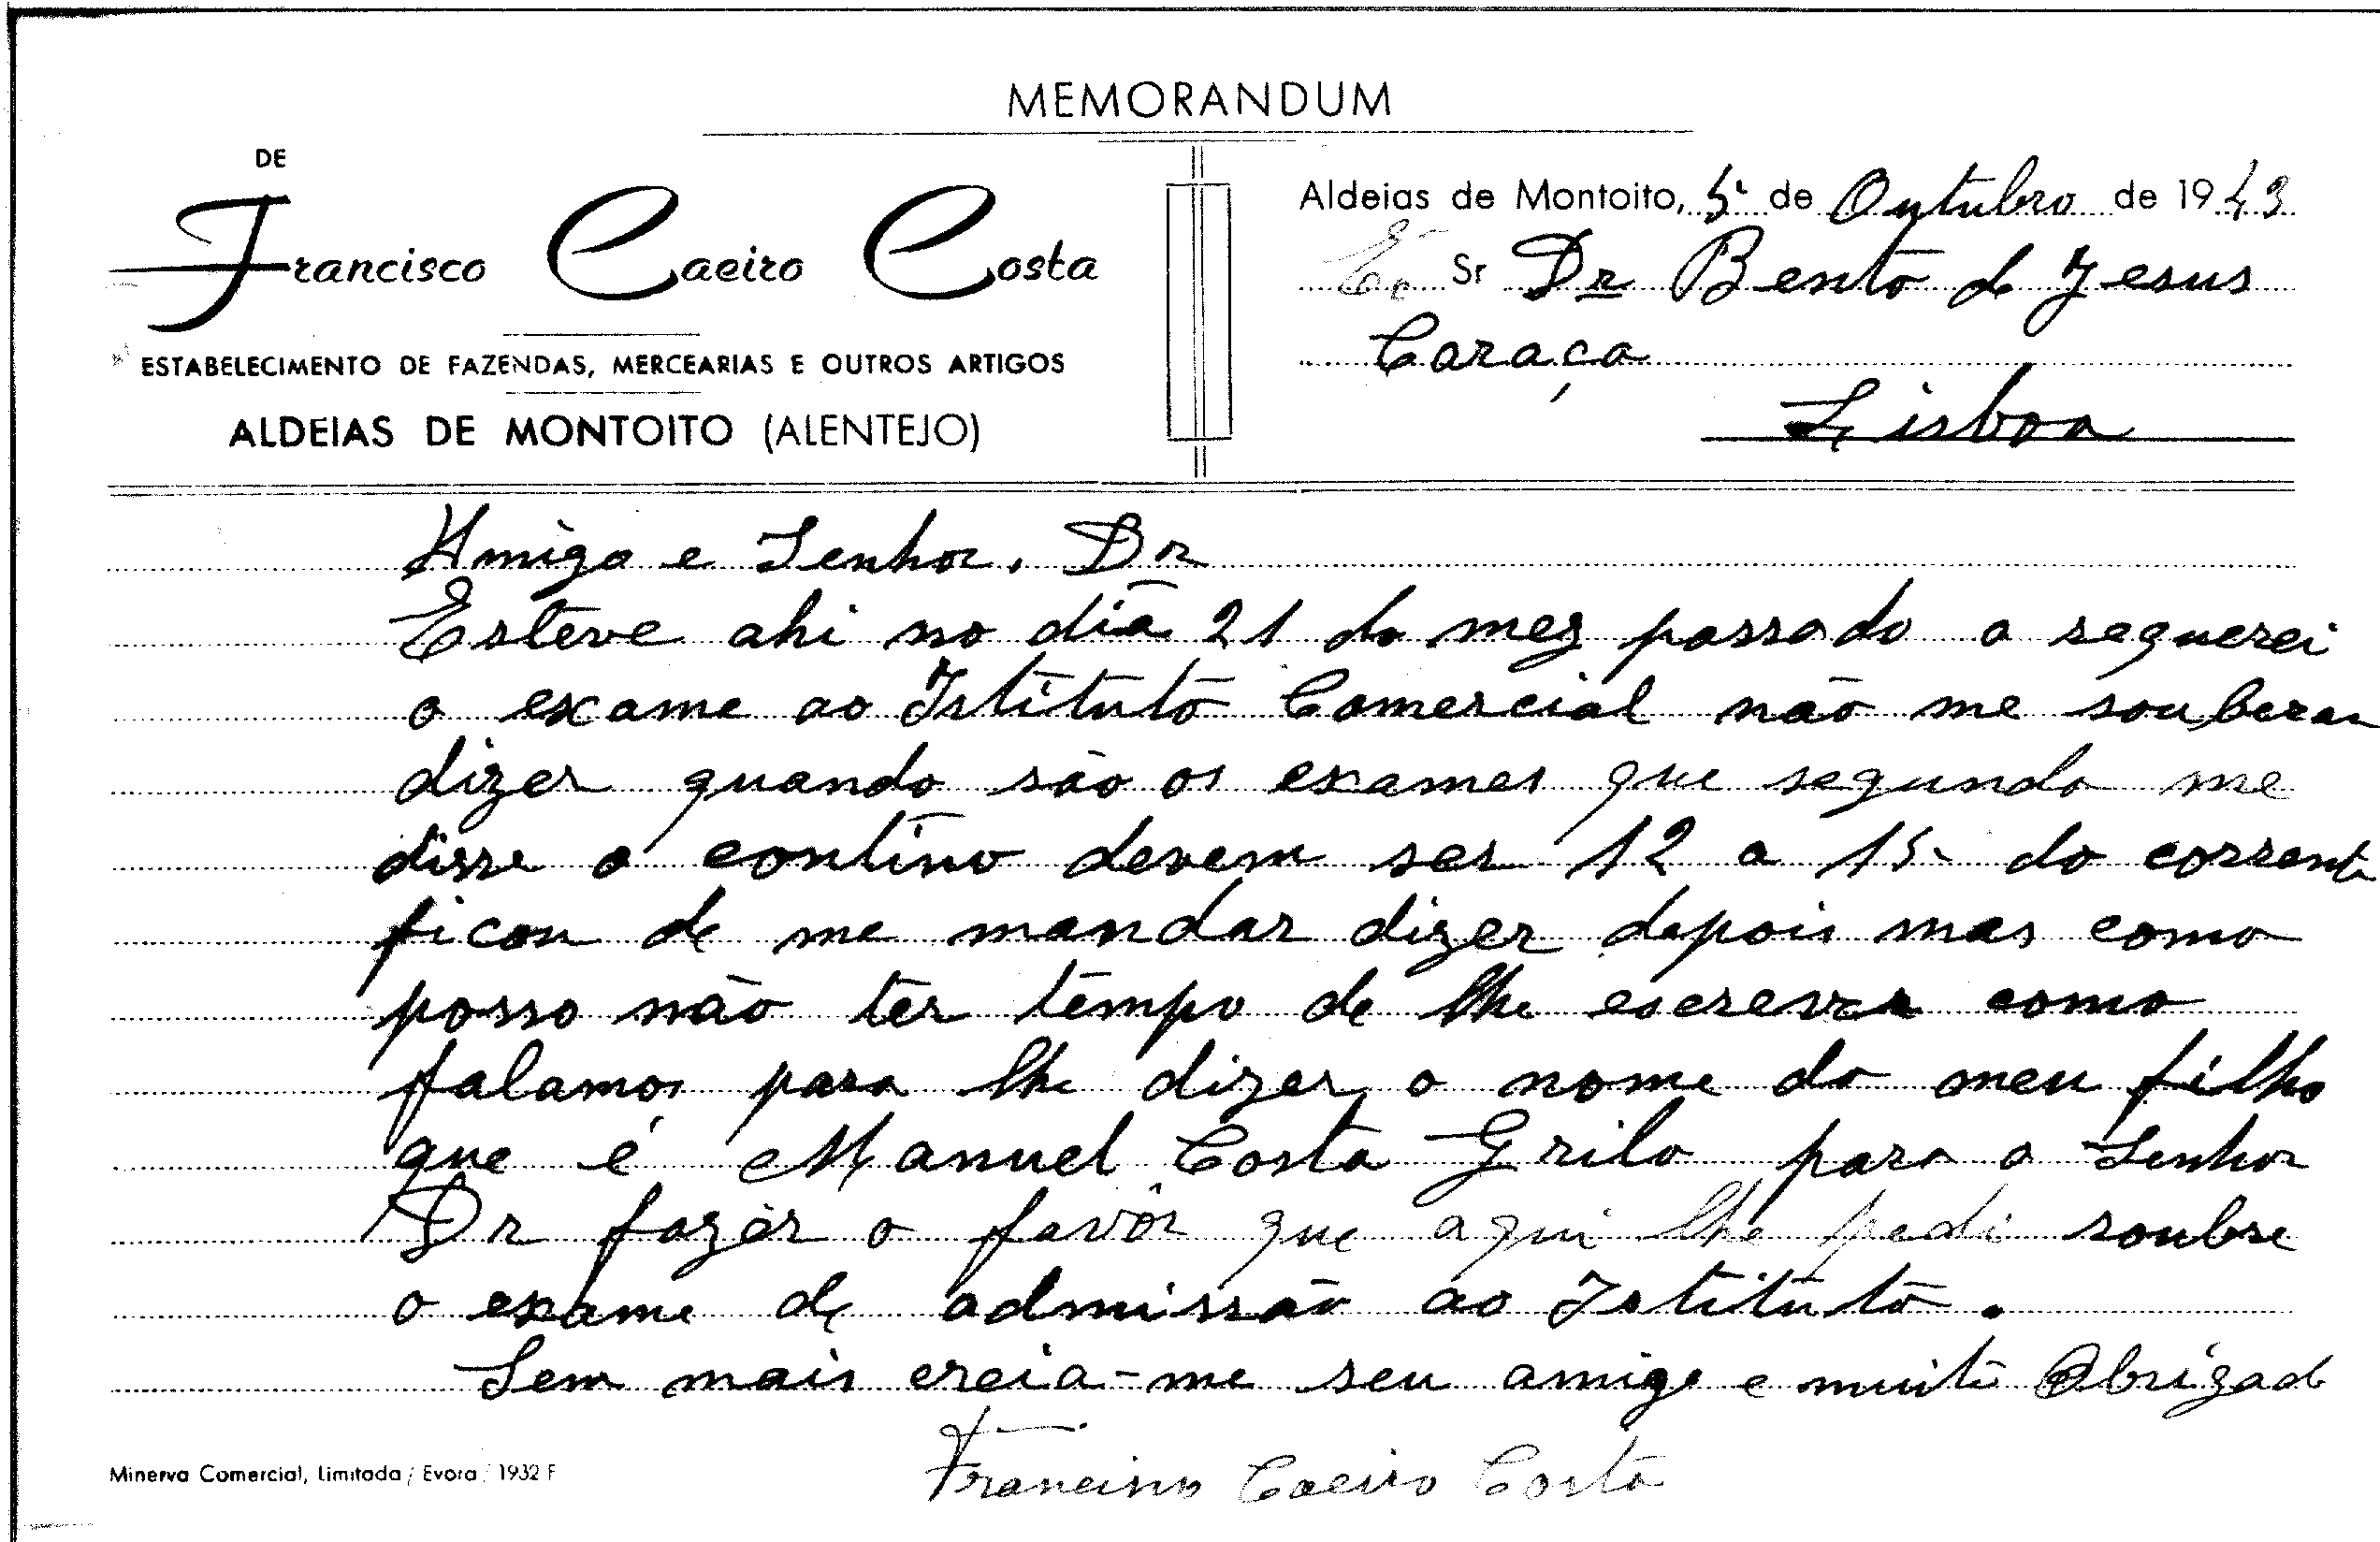 MEMORANDUM
DE
Francisco Caeiro Costa
ESTABELECIMENTO DE FAZENDAS, MERCEARIAS E OUTROS ARTIGOS
ALDEIAS DE MONTOITO (ALENTEJO)
Aldeias de Montoito, 5 de Outubro de 1943
Sr Dr Bento de Jesus
Caraça
Lisboa
Amigo e Senhor. Dr
Esteve ahi no dia 21 do mez passado a requerei
o exame ao Istituto Comercial não me souberan
dizer quando são os exames que segundo me
disse o contino devem ser 12 a 15 do corrente
ficou de me mandar dizer depois mas como
posso não ter tempo de lhe escrever como
falamos para lhe dizer o nome do meu filho
que é Manuel Costa Grilo para o Senhor
Dr fazer o favôr que aqui lhe pedi soubre
o exame de admissão ao Istituto.
Sem mais creia-me seu amigo e muito Obrigado
Francisco Caeiro Costa
Minerva Comercial, Limitada / Evora / 1932 F